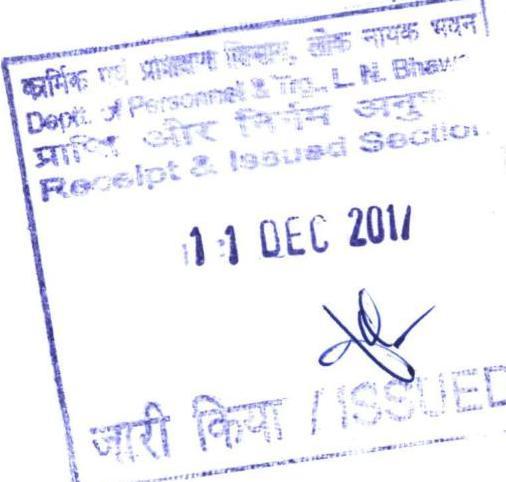 कार्मिक एवं प्रशिक्षण विभाग, लोक नायक भवन
Deptt. of Personnel & Trg., L. N. Bhaw
प्राप्ति और निर्गम अनु
Receipt & Issued Section
11 DEC 2017
जारी किया / ISSUED